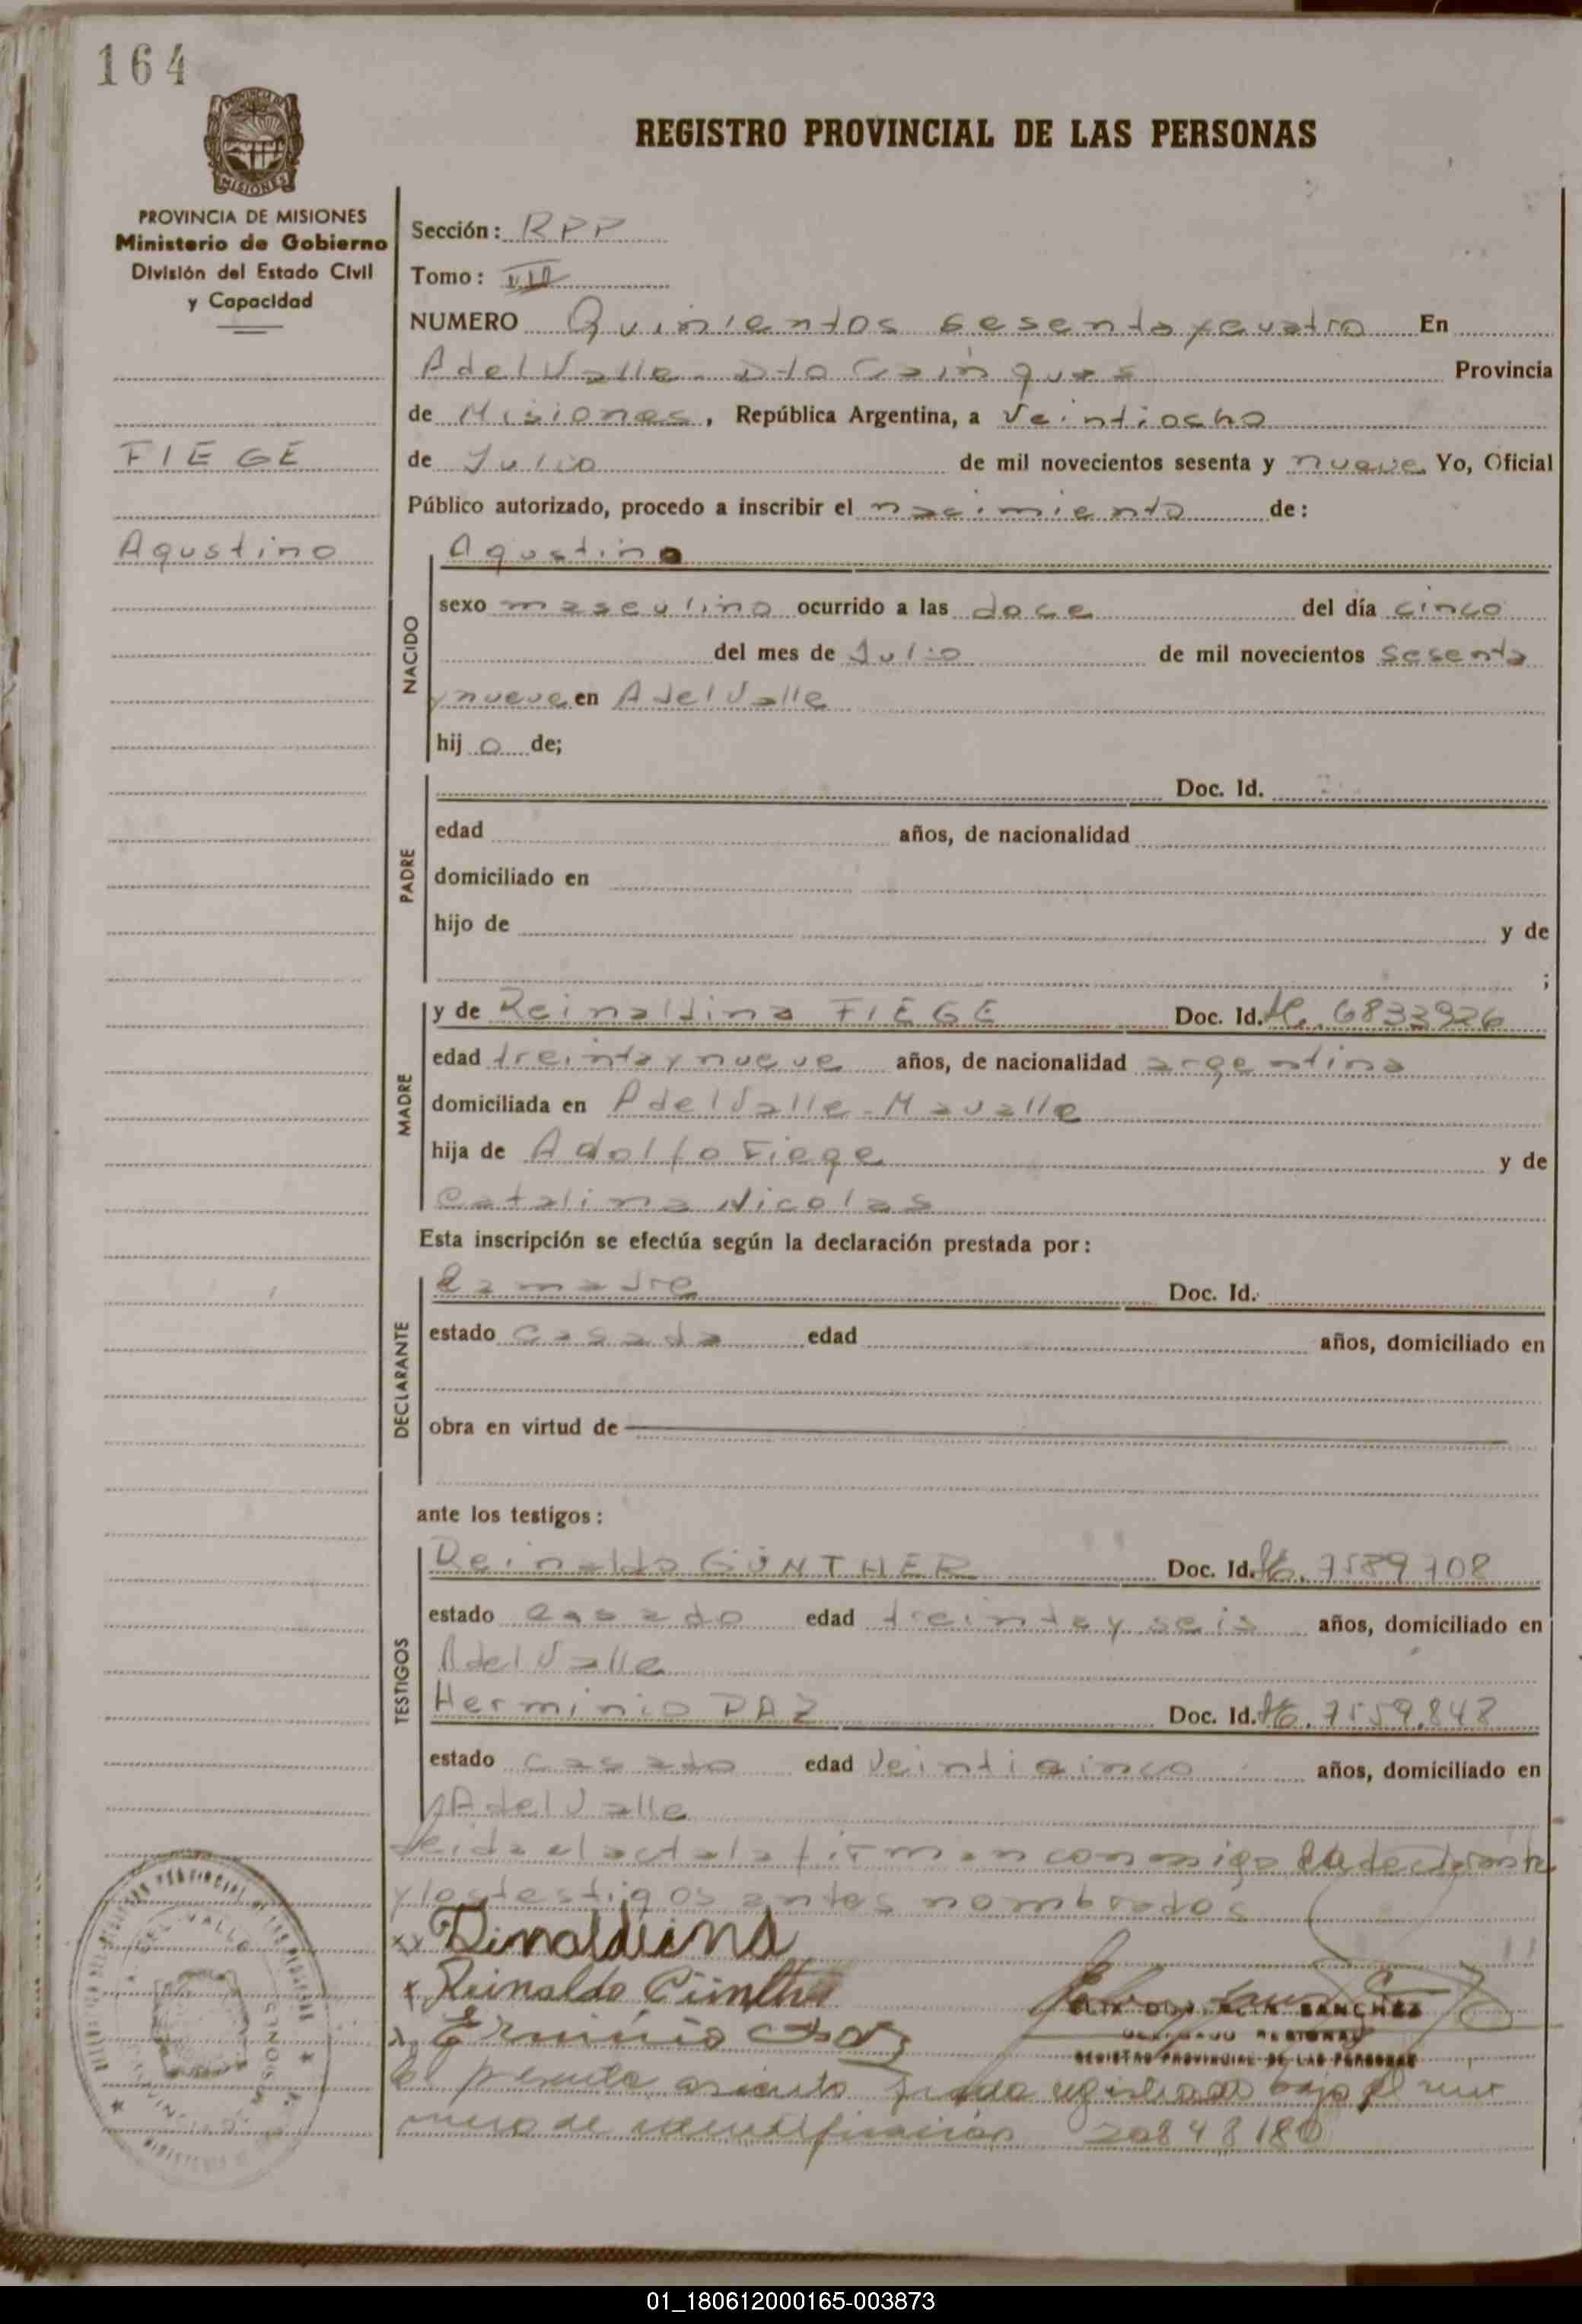 164
REGISTRO PROVINCIAL DE LAS PERSONAS
PROVINCIA DE MISIONES
Ministerio de Gobierno
División del Estado Civil
y Capacidad
FIEGE
Agustino
Sección: RPP
Tomo: III
NUMERO Quinientos sesenta y cuatro En
A del Valle - Dto Cainguas Provincia
de Misiones, República Argentina, a Veintiocho
de Julio de mil novecientos sesenta y nueve Yo, Oficial
Público autorizado, procedo a inscribir el nacimiento de:
NACIDO
Agustino
sexo masculino ocurrido a las doce del día cinco
del mes de Julio de mil novecientos sesenta
y nueve en A del Valle
hij o de;
PADRE
Doc. Id.
edad años, de nacionalidad
domiciliado en
hijo de y de
;
MADRE
y de Reinaldina FIEGE Doc. Id. 6832926
edad treinta y nueve años, de nacionalidad argentina
domiciliada en A del Valle - Mavalle
hija de Adolfo Fiege y de
Catalina Nicolas
Esta inscripción se efectúa según la declaración prestada por:
DECLARANTE
La madre Doc. Id.
estado casada edad años, domiciliado en
obra en virtud de
ante los testigos:
TESTIGOS
Reinaldo GÜNTHER Doc. Id. 7589108
estado casado edad treinta y seis años, domiciliado en
A del Valle
Herminio PAZ Doc. Id. 7559.848
estado casado edad Veinticinco años, domiciliado en
A del Valle
Leida el acta la firman conmigo la declarante
y los testigos antes nombrados
Dinaldina
Reinaldo Günther
Erminio Paz
SANCHEZ
DELEGADO REGIONAL
REGISTRO PROVINCIAL DE LAS PERSONAS
El presente asiento queda registrado bajo el nu
mero de identificación 20848180
01_180612000165-003873